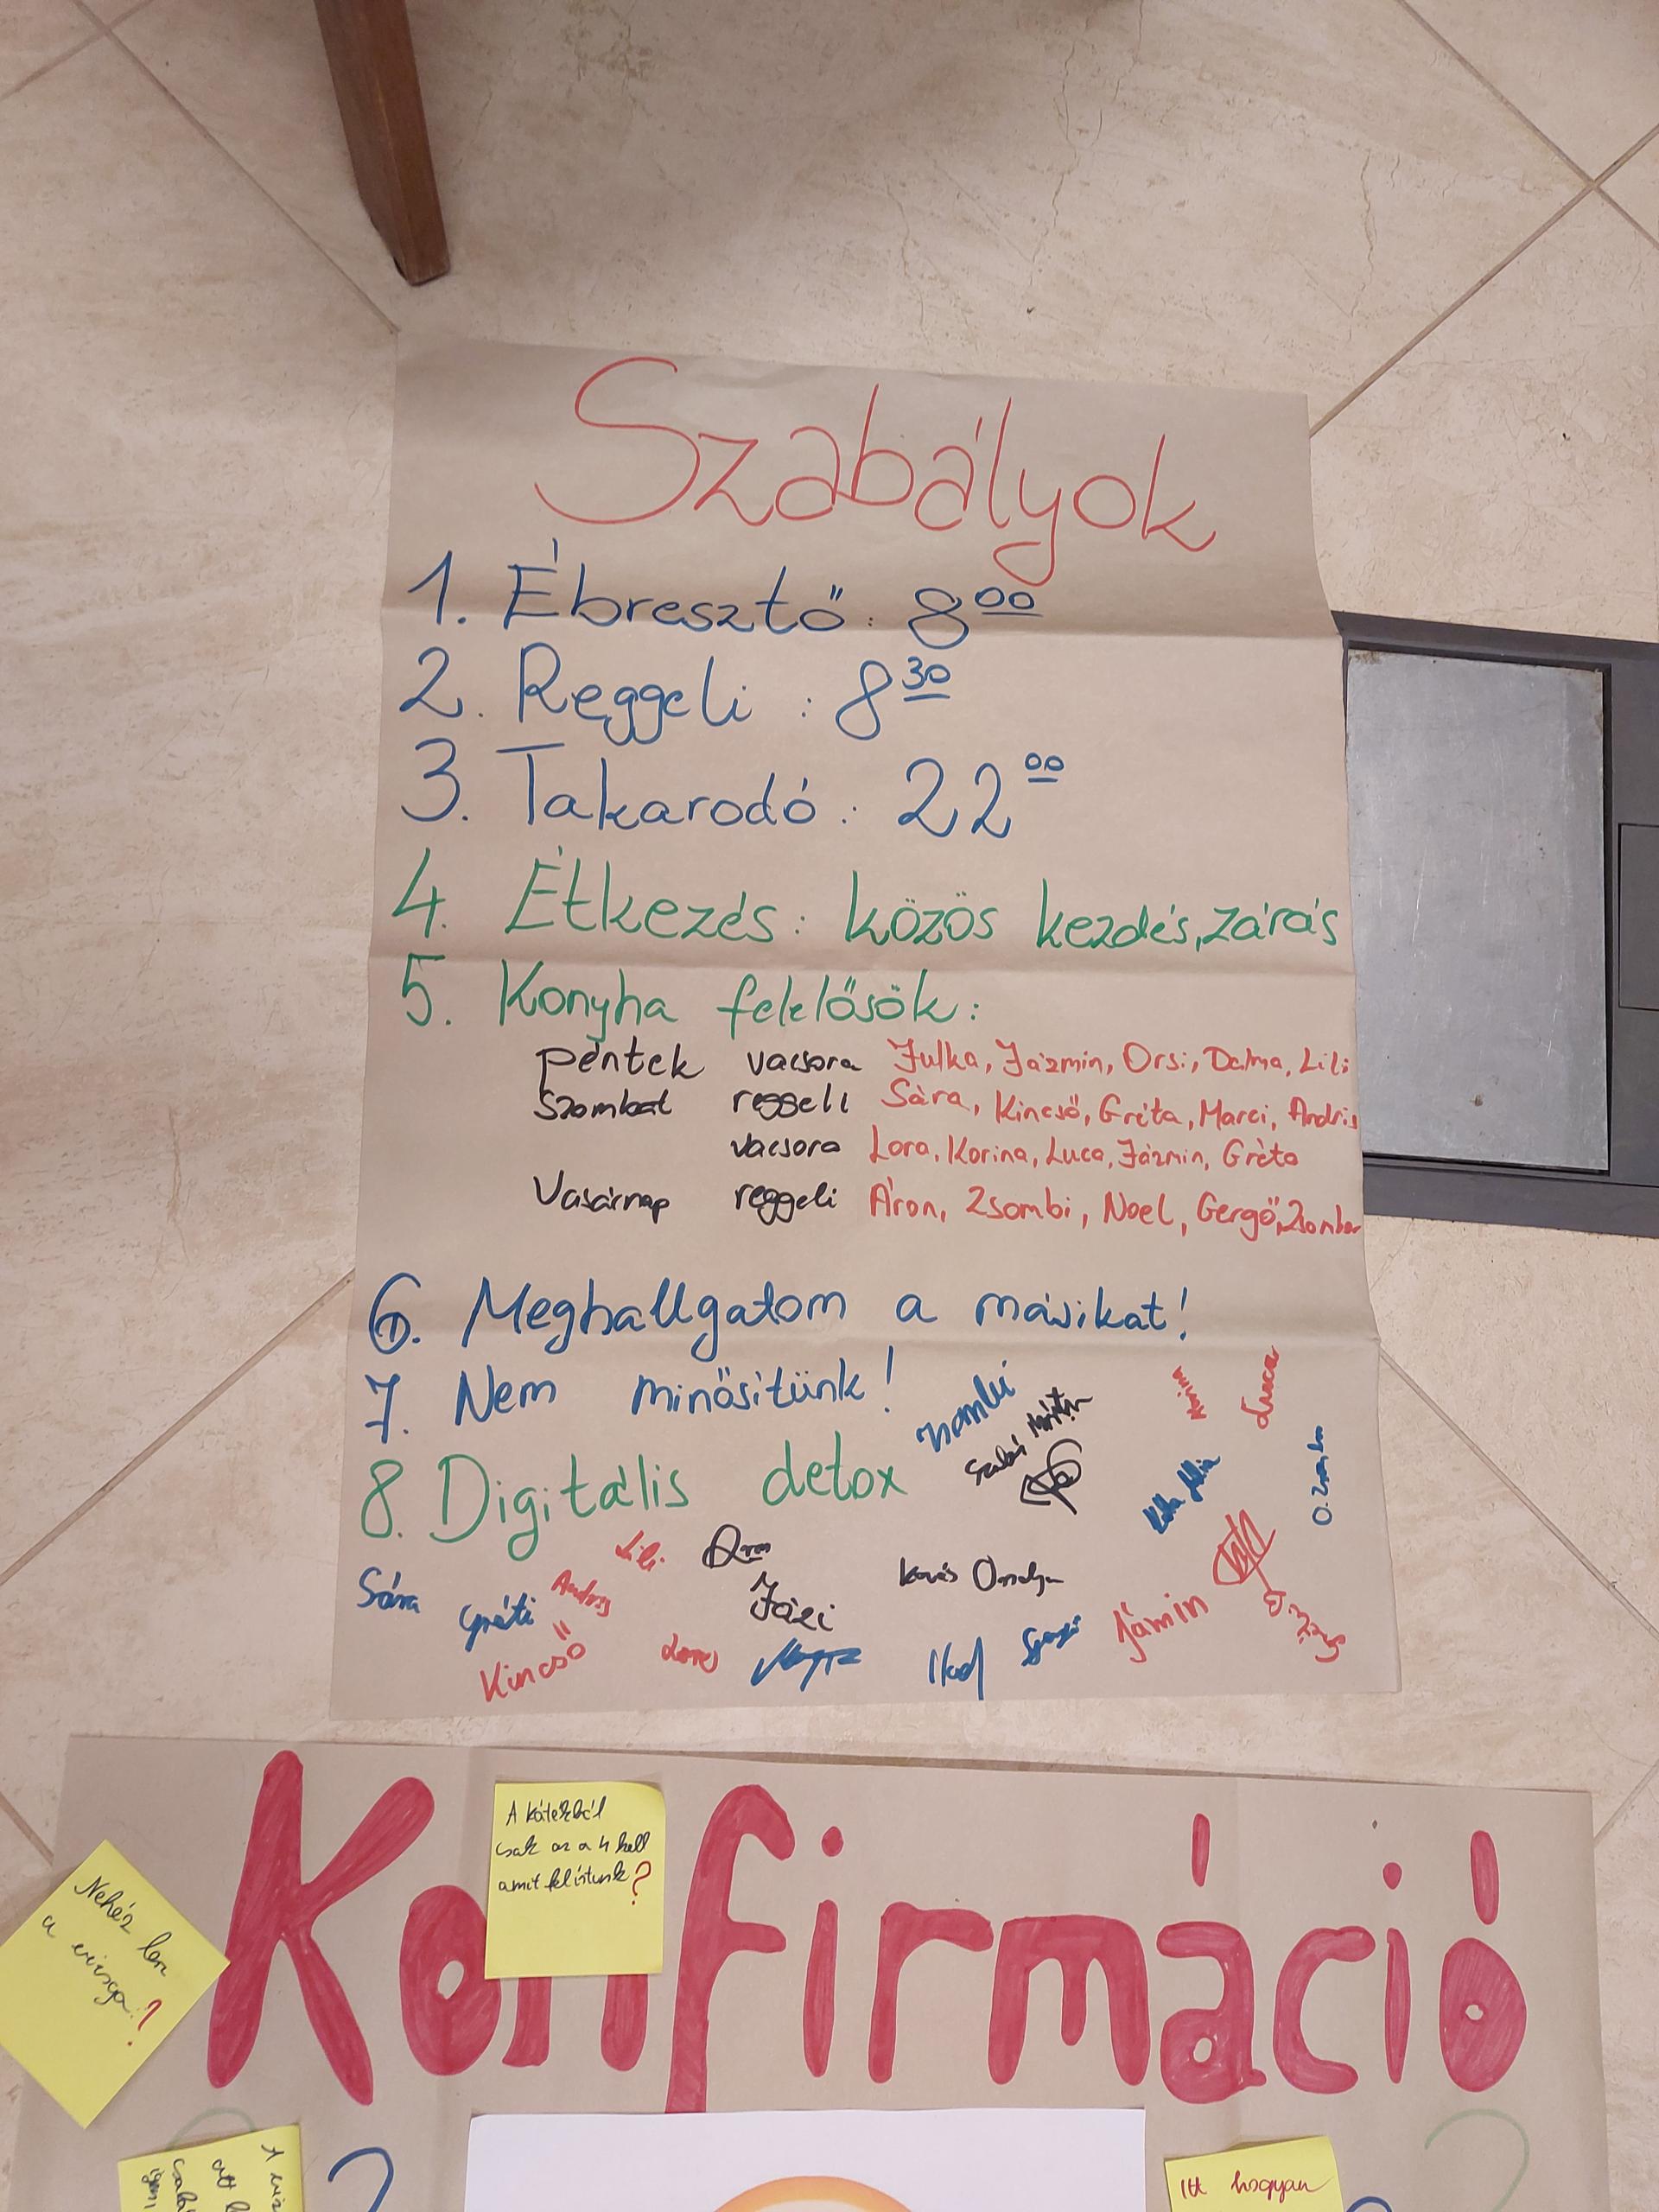 Szabályok
1. Ébresztő: 8 00
2. Reggeli : 8 30
3. Takarodó : 22 00
4. Étkezés: közös kezdés, zárás
5. Konyha felelősök:
péntek vacsora Julka, Jázmin, Orsi, Dalma, Lili
Szombat reggeli Sára, Kincső, Gréta, Marci, Andris
vacsora Lora, Korina, Luca, Jázmin, Gréta
Vasárnap reggeli Áron, Zsombi, Noel, Gergő, Zsombor
6. Meghallgatom a másikat!
7. Nem minősítünk!
Zsombi
Szabó Márton
Korina
Luca
8. Digitális detox
O. Zsombor
Lili
Áron
Sára
Gréti
Andris
Jázi
Kovács Orsolya
Jázmin
Kincső
Lora
Gergő
Konfirmáció
A kátékból
csak az a 4 kell
amit felírtunk?
Nehéz lesz
a vizsga?
A
itt hogyan